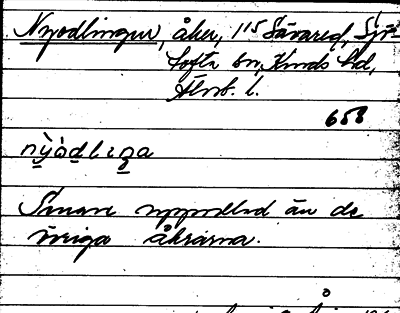 Nyodlingen, åker, 115 Sävared, Sjö-
tofta sn, Kinds hd,
Älvsb. l.
658
nỳòdlıŋa
Senare uppodlad än de
övriga åkrarna.